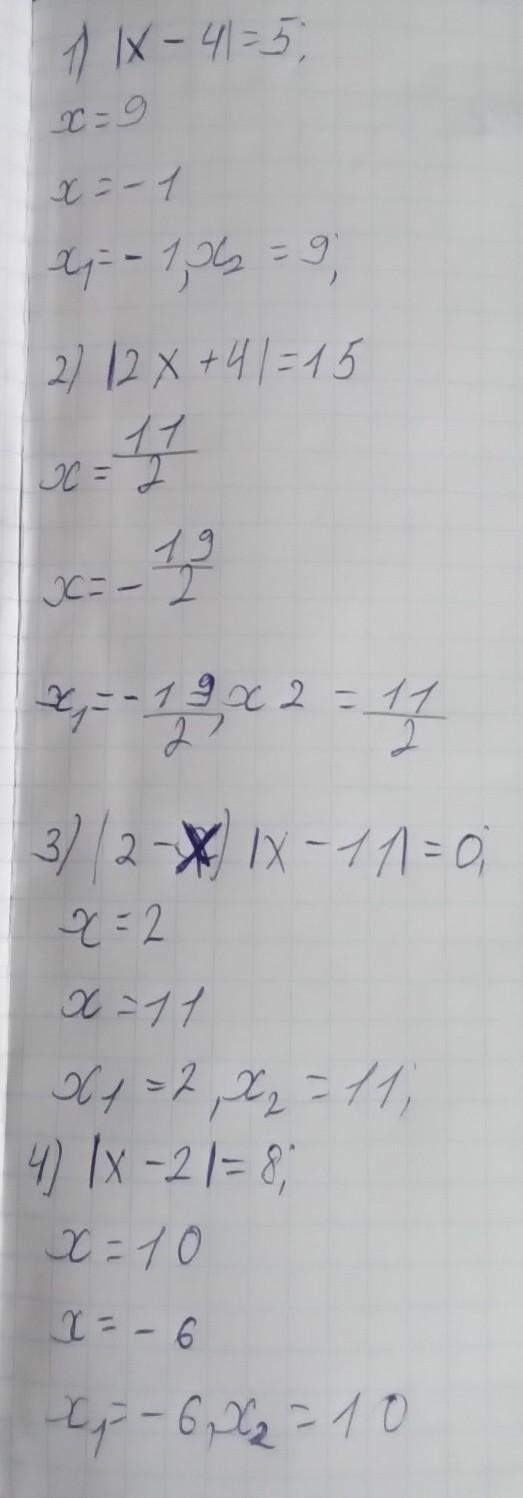 1) |x - 4| = 5;
x = 9
x = - 1
x₁ = - 1, x₂ = 9;
2) |2x + 4| = 15
x = 11/2
x = - 19/2
x₁ = - 19/2, x2 = 11/2
3) (2 - x) |x - 11| = 0;
x = 2
x = 11
x1 = 2, x₂ = 11;
4) |x - 2| = 8;
x = 10
x = - 6
x₁ = - 6, x₂ = 10